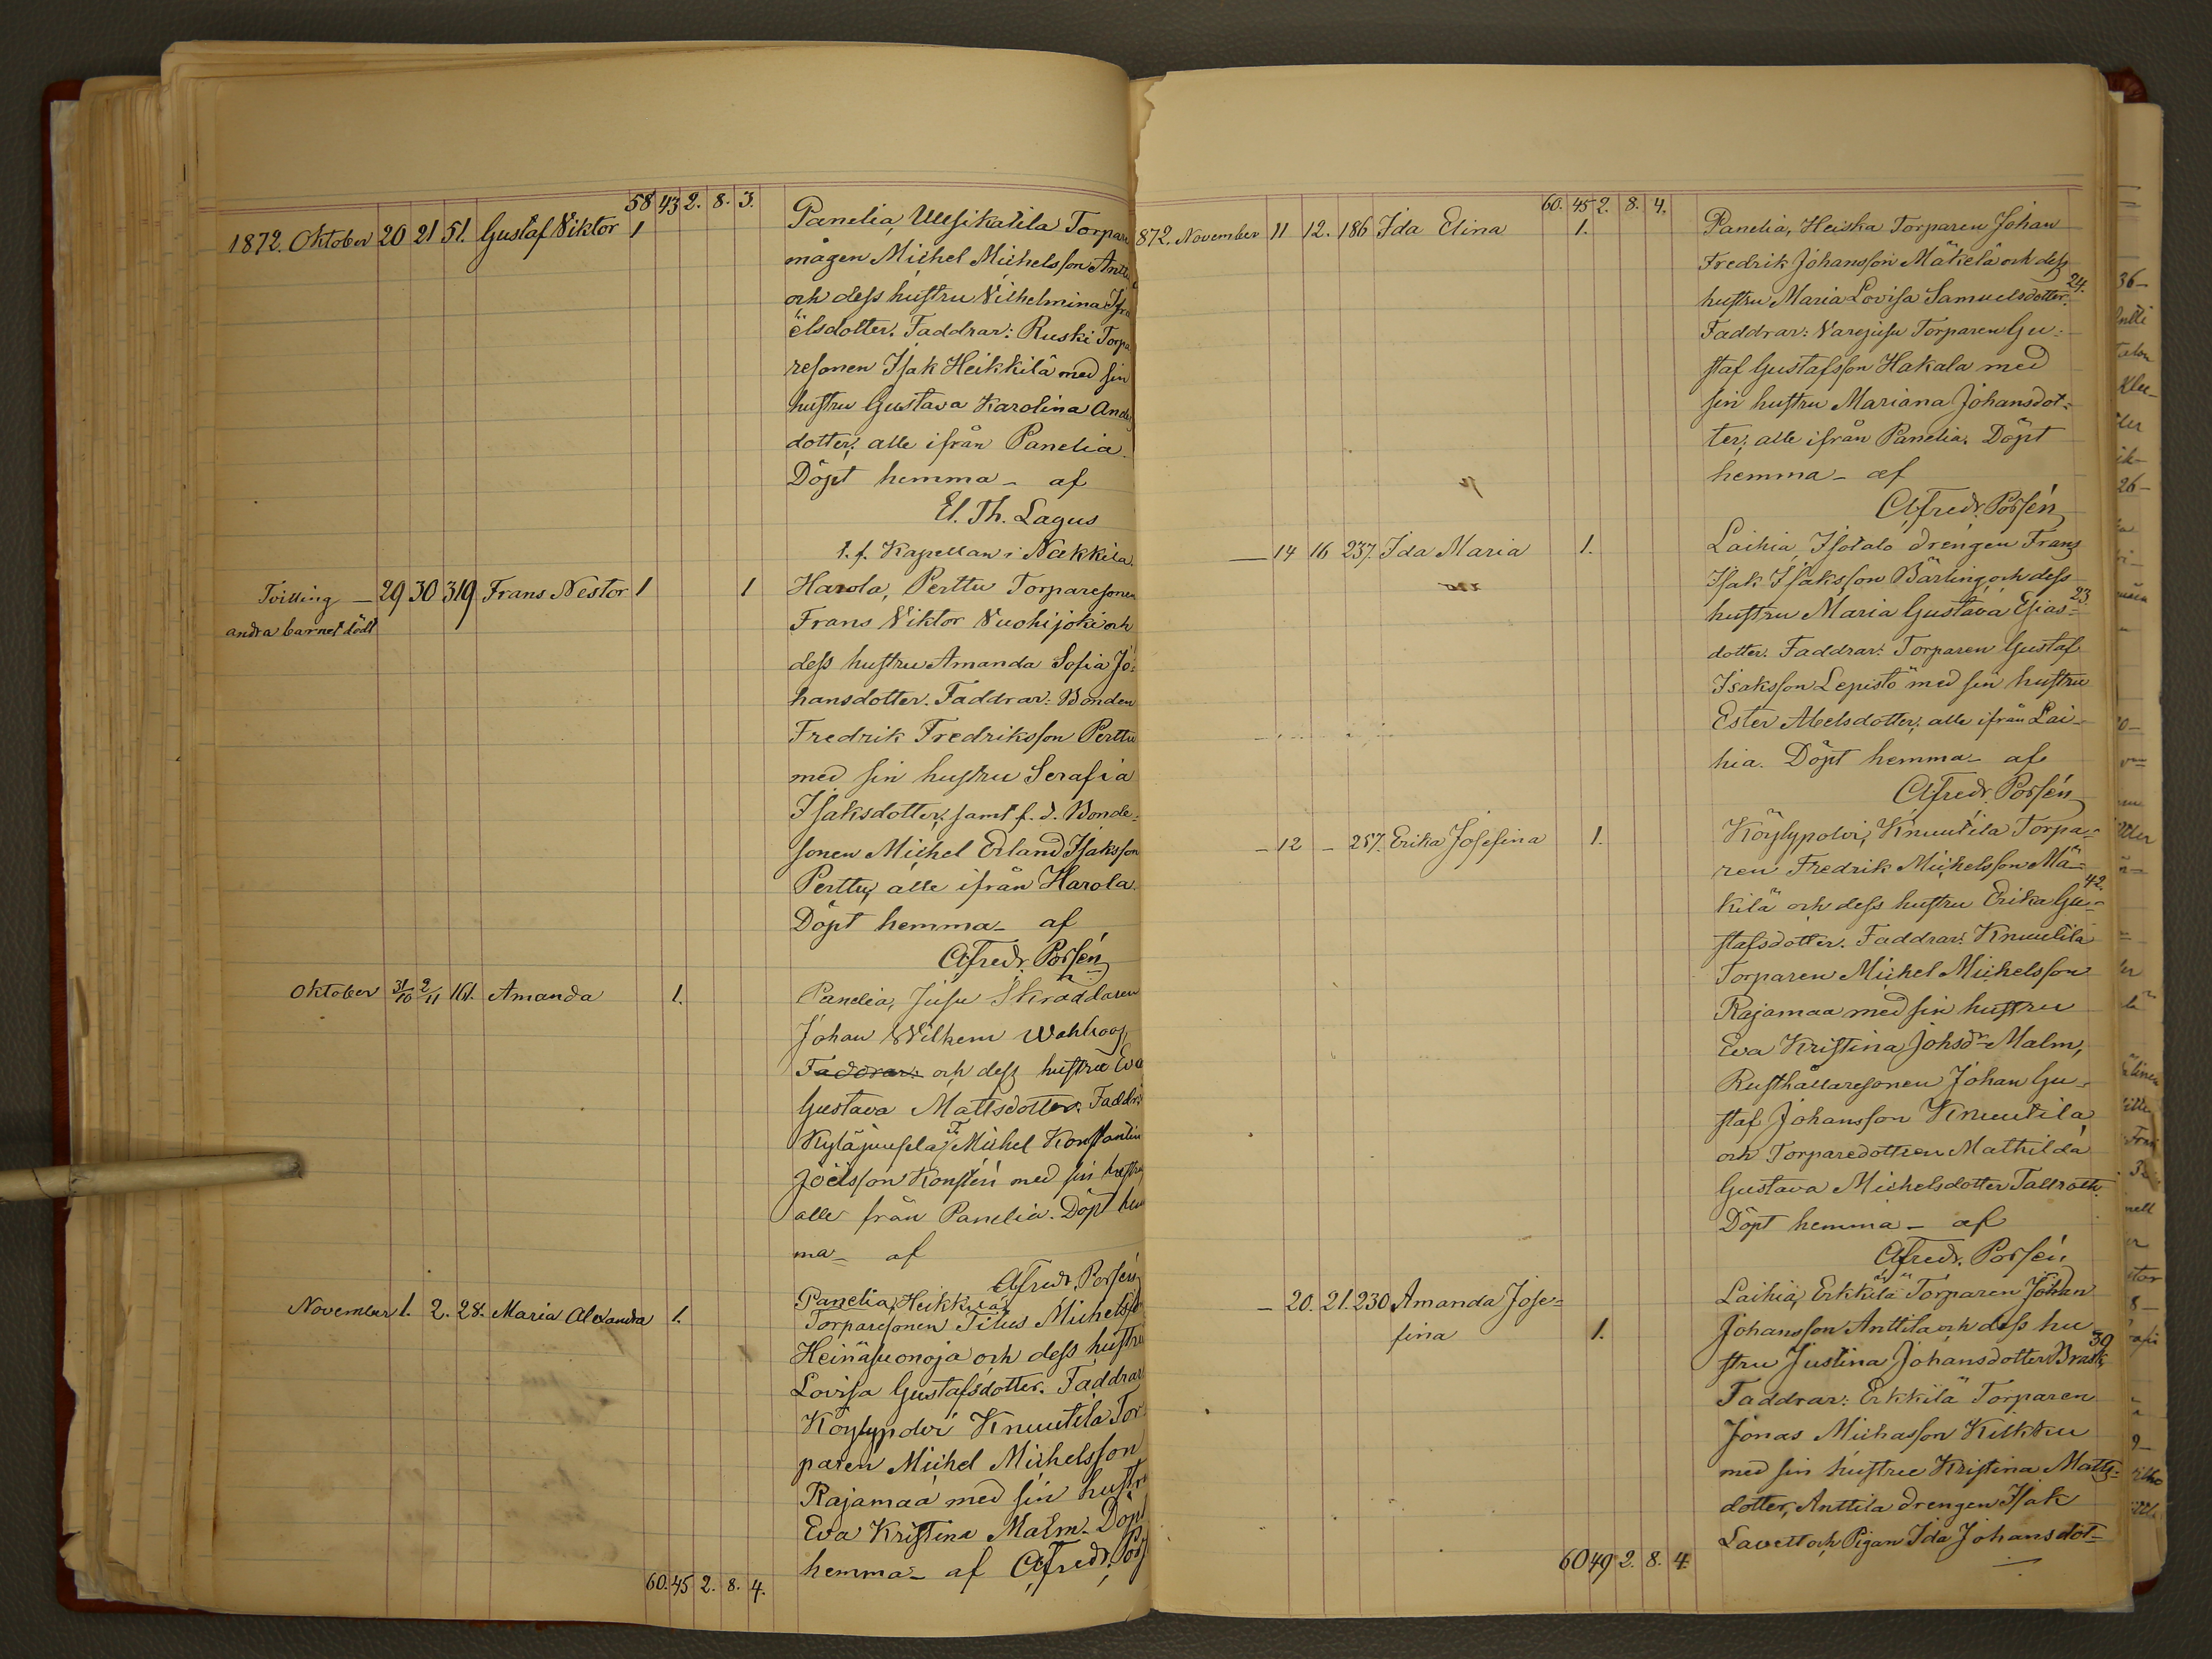 58 43 2. 8. 3.
1872. Oktober 20 21 51. Gustaf Viktor 1 Panelia, Uusikatila Torpare
mågen Michel Michelsson Antti
och dess hustru Vilhelmina Isra
ëlsdotter. Faddrar: Ruski Torpa
resonen Isak Heikkilä med sin
hustru Gustava Karolina Anders
dotter; alle ifrån Panelia.
Döpt hemma – af
El. Th. Lagus
t.f. Kapellan i Nakkila.
Tvilling – 29 30 319 Frans Nestor 1 1 Harola, Perttu Torparesonen
andra barnet dödt Frans Viktor Vuohijoki och
dess hustru Amanda Sofia Jo-
hansdotter. Faddrar: Bonden
Fredrik Fredriksson Perttu
med sin hustru Serafia
Isaksdotter, samt f. d. Bonde-
sonen Michel Erland Isaksson
Perttu, alle ifrån Harola.
Döpt hemma – af
Alfredr. Porsén
Oktober 31/10 2/11 161. Amanda 1. Panelia, Jusu Skraddaren
Johan Wilhem Wahlroos,
Faddrar: och dess hustru Eva
Gustava Mattsdotter. Faddr:
Kyläjuusela, T. Michel Konstantin
Joëlsson Konstén med sin hustru
alle från Panelia. Döpt hem
ma – af
Alfredr. Porsén
November 1. 2. 28. Maria Alexandra 1. Panelia, Heikkilä
Torparesonen Titus Michelsson
Heinäsuonoja och dess hustru
Lovisa Gustafsdotter. Faddrar
Köylypolvi Knuutila Tor-
paren Michel Michelsson
Rajamaa med sin hustru
Eva Kristina Malm. Döpt
hemma – af Alfredr. Pors
60. 45 2. 8. 4.
60. 45 2. 8. 4.
872. November 11 12. 186 Ida Elina 1. Panelia, Heiska Torparen Johan
Fredrik Johansson Mäkelä och dess
hustru Maria Lovisa Samuelsdotter. 24.
Faddrar: Varejusu Torparen Gu-
staf Gustafsson Hakala med
sin hustru Mariana Johansdot-
ter; alle ifrån Panelia. Döpt
hemma – af
Alfredr. Porsén
– 14 16 237. Ida Maria 1. Laihia, Isotalo drengen Frans
Isak Isaksson Bärling, och dess
hustru Maria Gustava Esias- 23
dotter. Faddrar: Torparen Gustaf
Isaksson Lepistö med sin hustru
Ester Abelsdotter; alle ifrån Lai-
hia. Döpt hemma – af
Alfredr. Porsén
– 12 – 257. Erika Josefina 1. Köylypolvi, Knuutila Torpa-
ren Fredrik Michelsson Mä-
kilä och dess hustru Erika Gu- 42.
stafsdotter. Faddrar: Knuutila
Torparen Michel Michelsson
Rajamaa med sin hustru
Eva Kristina Johsdr Malm,
Rusthållaresonen Johan Gu-
staf Johansson Knuutila
och Torparedottren Mathilda
Gustava Michelsdotter Tallroth.
Döpt hemma – af
Alfredr. Porsén
– 20. 21. 230 Amanda Jose- Laihia, Erkkilä Torparen Johan
fina 1. Johansson Anttila och dess hu
stru Justina Johansdotter Brask, 39
Faddrar: Erkkilä Torparen
Jonas Michasson Kilkku
med sin hustru Kristina Matts-
dotter, Anttila drengen Isak
Lavell och Pigan Ida Johansdot-
60 49 2. 8. 4.